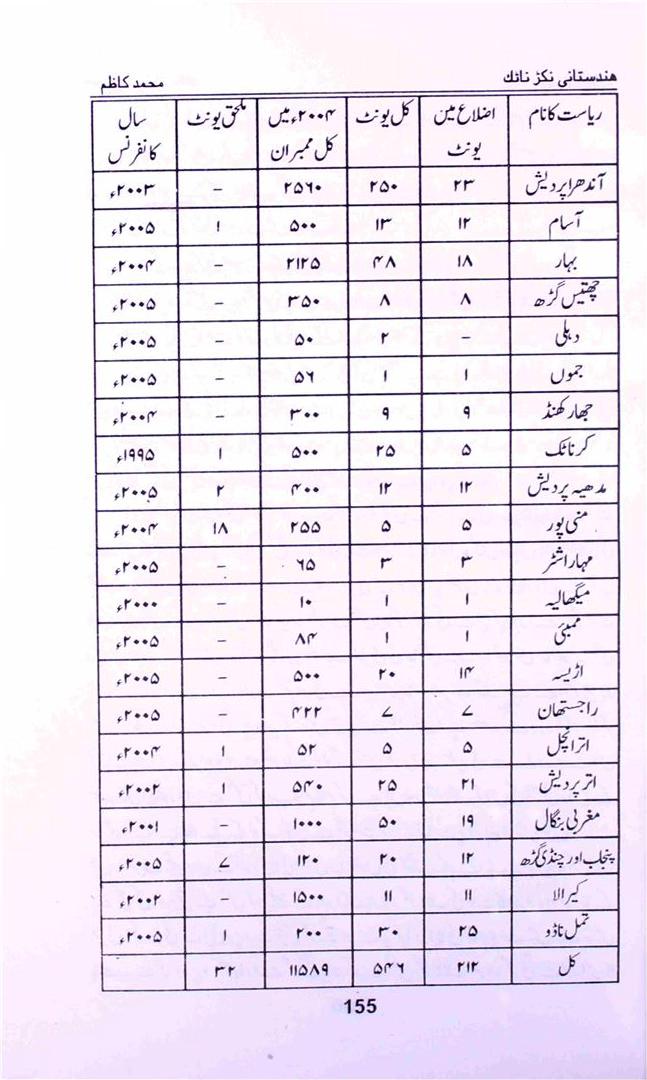 هندستانی نکڑ ناٹک محمد کاظم
ریاست کا نام اضلاع میں یونٹ کل یونٹ ۲۰۰۴ء میں کل ممبران ملحق یونٹ سال کانفرنس
آندھرا پردیش ۲۳ ۲۵۰ ۲۵۶۰ – ۲۰۰۳ء
آسام ۱۲ ۱۳ ۵۰۰ ۱ ۲۰۰۵ء
بہار ۱۸ ۴۸ ۲۱۲۵ – ۲۰۰۴ء
چھتیس گڑھ ۸ ۸ ۳۵۰ – ۲۰۰۵ء
دہلی – ۲ ۵۰ – ۲۰۰۵ء
جموں ۱ ۱ ۵۶ – ۲۰۰۵ء
جھارکھنڈ ۹ ۹ ۳۰۰ – ۲۰۰۴ء
کرناٹک ۵ ۲۵ ۵۰۰ ۱ ۱۹۹۵ء
مدھیہ پردیش ۱۲ ۱۲ ۴۰۰ ۲ ۲۰۰۵ء
منی پور ۵ ۵ ۲۵۵ ۱۸ ۲۰۰۴ء
مہاراشٹر ۳ ۳ ۶۵ – ۲۰۰۵ء
میگھالیہ ۱ ۱ ۱۰ – ۲۰۰۰ء
ممبئی ۱ ۱ ۸۴ – ۲۰۰۵ء
اڑیسہ ۱۴ ۲۰ ۵۰۰ – ۲۰۰۵ء
راجستھان ۷ ۷ ۴۲۲ – ۲۰۰۵ء
اترانچل ۵ ۵ ۵۲ ۱ ۲۰۰۴ء
اتر پردیش ۲۱ ۲۵ ۵۴۰ ۱ ۲۰۰۲ء
مغربی بنگال ۱۹ ۵۰ ۱۰۰۰ – ۲۰۰۱ء
پنجاب اور چنڈی گڑھ ۱۲ ۲۰ ۱۲۰ ۷ ۲۰۰۵ء
کیرالا ۱۱ ۱۱ ۱۵۰۰ – ۲۰۰۲ء
تمل ناڈو ۲۵ ۳۰ ۲۰۰ ۱ ۲۰۰۵ء
کل ۲۱۲ ۵۴۶ ۱۱۵۸۹ ۳۲
155